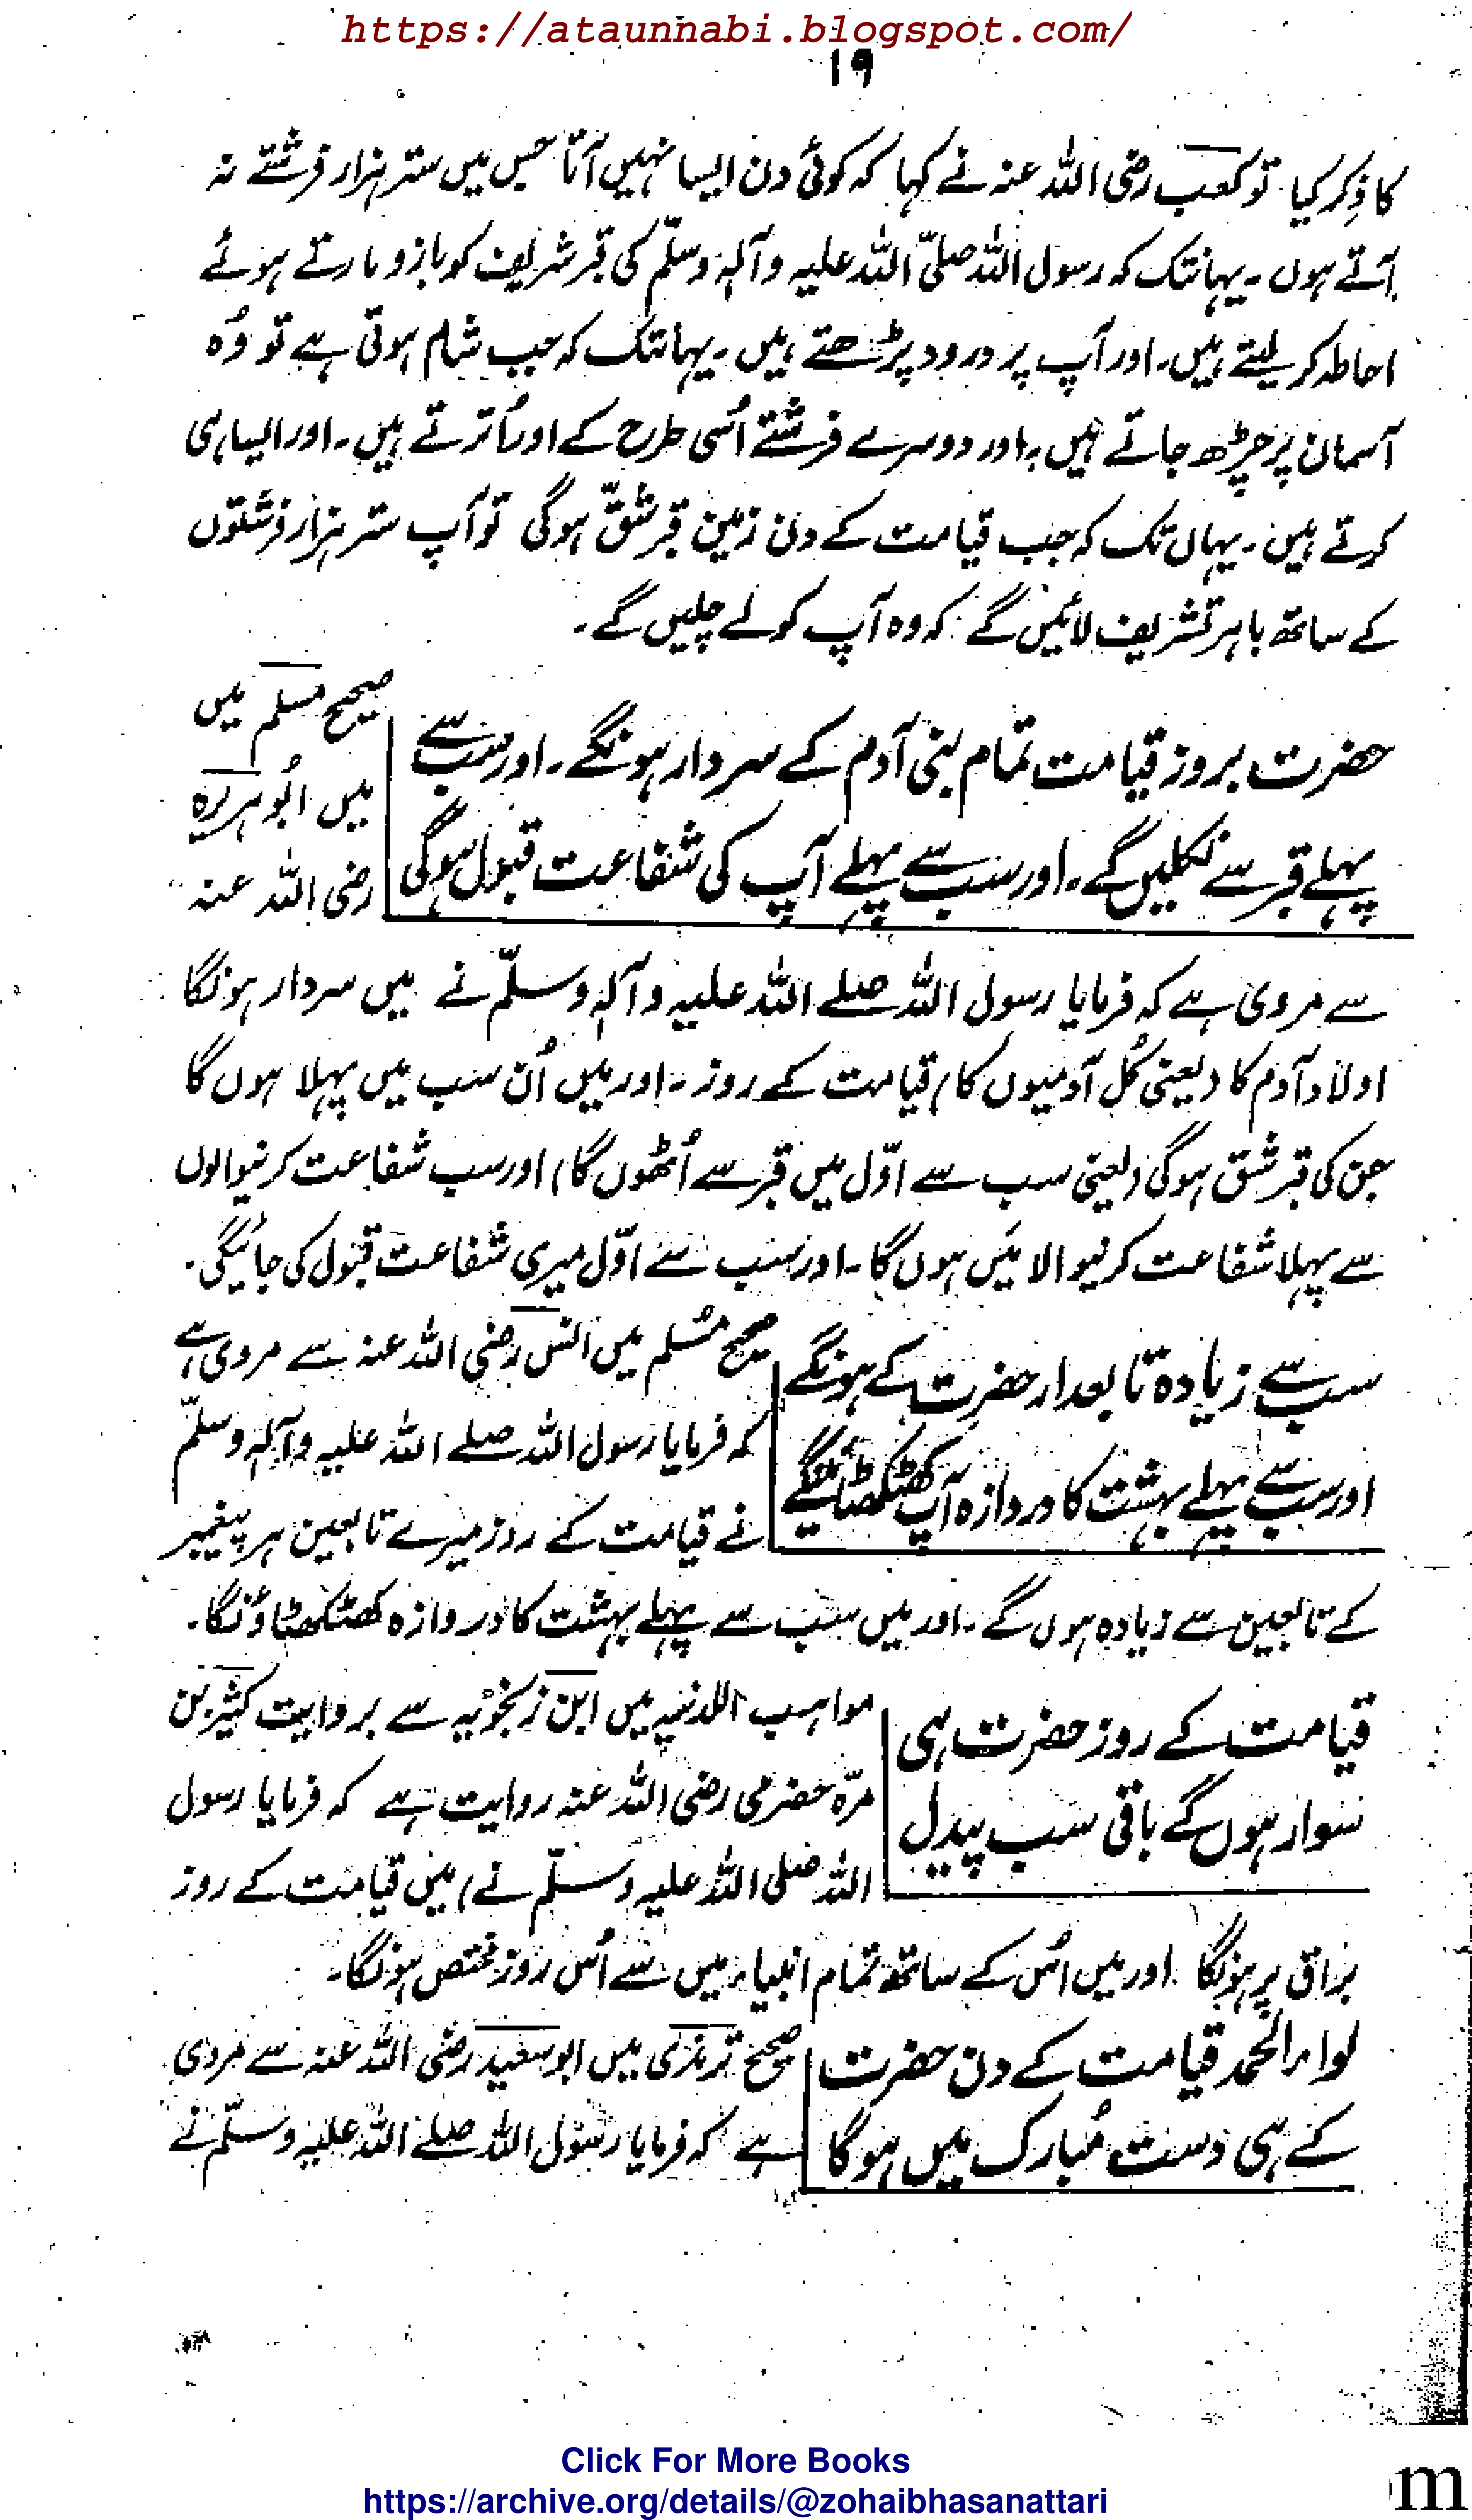 https://ataunnabi.blogspot.com/
۱۹
کا ذِکر کیا تو کعب رضی اللہ عنہ نے کہا کہ کوئی دن ایسا نہیں آتا جس میں ستر ہزار فرشتے نہ
آتے ہوں۔ یہانتک کہ رسول اللہ صلّی اللہ علیہ وآلہٖ وسلّم کی قبر شریف کو بازو مارتے ہوئے
احاطہ کر لیتے ہیں۔ اور آپ پر درود پڑھتے ہیں۔ یہانتک کہ جب شام ہوتی ہے تو وُہ
آسمان پر چڑھ جاتے ہیں۔ اور دوسرے فرشتے اُسی طرح کے اور اُترتے ہیں۔ اور ایسا ہی
کرتے ہیں۔ یہاں تک کہ جب قیامت کے دن زمین قبر شقّ ہوگی تو آپ ستر ہزار فرشتوں
کے ساتھ باہر تشریف لائیں گے کہ وہ آپ کو لے چلیں گے۔
حضرت بروز قیامت تمام بنی آدم کے سردار ہونگے۔ اور سب سے
پہلے قبر سے نکلیں گے۔ اور سب سے پہلے آپ کی شفاعت قبول ہوگی
صحیح مسلم میں
میں ابُو ہریرہ
رضی اللہ عنہ
سے مروی ہے کہ فرمایا رسول اللہ صلے اللہ علیہ وآلہٖ وسلّم نے میں سردار ہونگا
اولاد آدم کا (یعنی کُل آدمیوں کا) قیامت کے روز۔ اور میں اُن سب میں پہلا ہوں گا
جن کی قبر شق ہوگی (یعنی سب سے اوّل میں قبر سے اُٹھوں گا) اور سب شفاعت کرنیوالوں
سے پہلا شفاعت کرنیوالا مَیں ہوں گا۔ اور سب سے اوّل میری شفاعت قبول کی جائیگی۔
سب سے زیادہ تابعدار حضرت کے ہونگے
اور سب سے پہلے بہشت کا دروازہ آپ کھٹکھٹائینگے
صحیح مُسلم میں انس رضی اللہ عنہ سے مروی ہے
کہ فرمایا رسول اللہ صلے اللہ علیہ وآلہٖ وسلّم
نے قیامت کے روز میرے تابعین ہر پیغمبر
کے تابعین سے زیادہ ہوں گے۔ اور میں سب سے پہلے بہشت کا دروازہ کھٹکھٹاؤنگا۔
قیامت کے روز حضرت ہی
سوار ہوں گے باقی سب پیدل
مواہب اللدنیہ میں ابن زنجویہ سے بروایت کثیر بن
مرّہ حضرمی رضی اللہ عنہ روایت ہے کہ فرمایا رسول
اللہ صلی اللہ علیہ وسلّم نے) میں قیامت کے روز
براق پر ہونگا اور میں اُس کے ساتھ تمام انبیاء میں سے اُس روز مختص ہونگا۔
لواء الحمد قیامت کے دن حضرت
کے ہی دست مُبارک میں ہوگا
صحیح ترمذی میں ابو سعید رضی اللہ عنہ سے مروی
ہے کہ فرمایا رسُول اللہ صلے اللہ علیہ وسلّم نے
Click For More Books
https://archive.org/details/@zohaibhasanattari